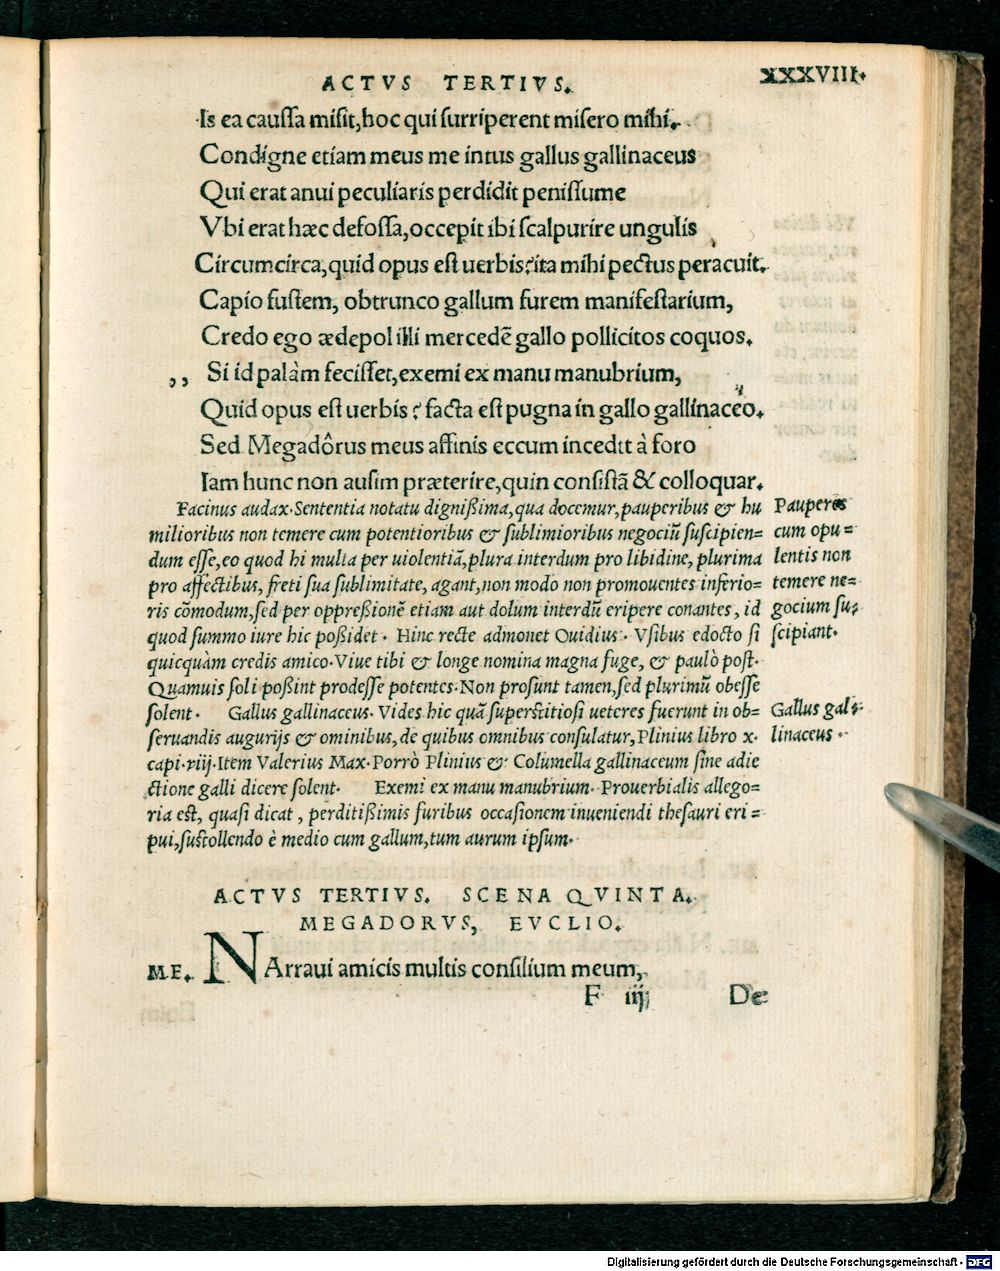 ACTVS TERTIVS.
XXXVIII.
Is ea caussa misit, hoc qui surriperent misero mihi.
Condigne etiam meus me intus gallus gallinaceus
Qui erat anui peculiaris perdidit penissume
Vbi erat hæc defossa, occepit ibi scalpurire ungulis
Circumcirca, quid opus est uerbis? ita mihi pectus peracuit.
Capio fustem, obtrunco gallum furem manifestarium,
Credo ego ædepol illi mercedẽ gallo pollicitos coquos.
,, Si id palàm fecisset, exemi ex manu manubrium,
Quid opus est uerbis? facta est pugna in gallo gallinaceo.
Sed Megadôrus meus affinis eccum incedit à foro
Iam hunc non ausim præterire, quin consistã & colloquar.
Facinus audax. Sententia notatu dignißima, qua docemur, pauperibus & hu
milioribus non temere cum potentioribus & sublimioribus negociũ suscipien=
dum esse, eo quod hi multa per uiolentiã, plura interdum pro libidine, plurima
pro affectibus, freti sua sublimitate, agant, non modo non promouentes inferio=
ris cõmodum, sed per oppreßionẽ etiam aut dolum interdũ eripere conantes, id
quod summo iure hic poßidet. Hinc recte admonet Ouidius. Vsibus edocto si
quicquàm credis amico. Viue tibi & longe nomina magna fuge, & paulò post.
Quamuis soli poßint prodesse potentes. Non prosunt tamen, sed plurimũ obesse
solent. Gallus gallinaceus. Vides hic quã superstitiosi ueteres fuerunt in ob=
seruandis augurijs & ominibus, de quibus omnibus consulatur, Plinius libro x.
capi. viij. Item Valerius Max. Porrò Plinius & Columella gallinaceum sine adie
ctione galli dicere solent. Exemi ex manu manubrium. Prouerbialis allego=
ria est, quasi dicat, perditißimis furibus occasionem inueniendi thesauri eri=
pui, sustollendo è medio cum gallum, tum aurum ipsum.
Pauperes
cum opu=
lentis non
temere ne=
gocium su=
scipiant.
Gallus gal=
linaceus.
ACTVS TERTIVS. SCENA QVINTA.
MEGADORVS, EVCLIO.
ME. NArraui amicis multis consilium meum,
F iij
De
Digitalisierung gefördert durch die Deutsche Forschungsgemeinschaft - DFG